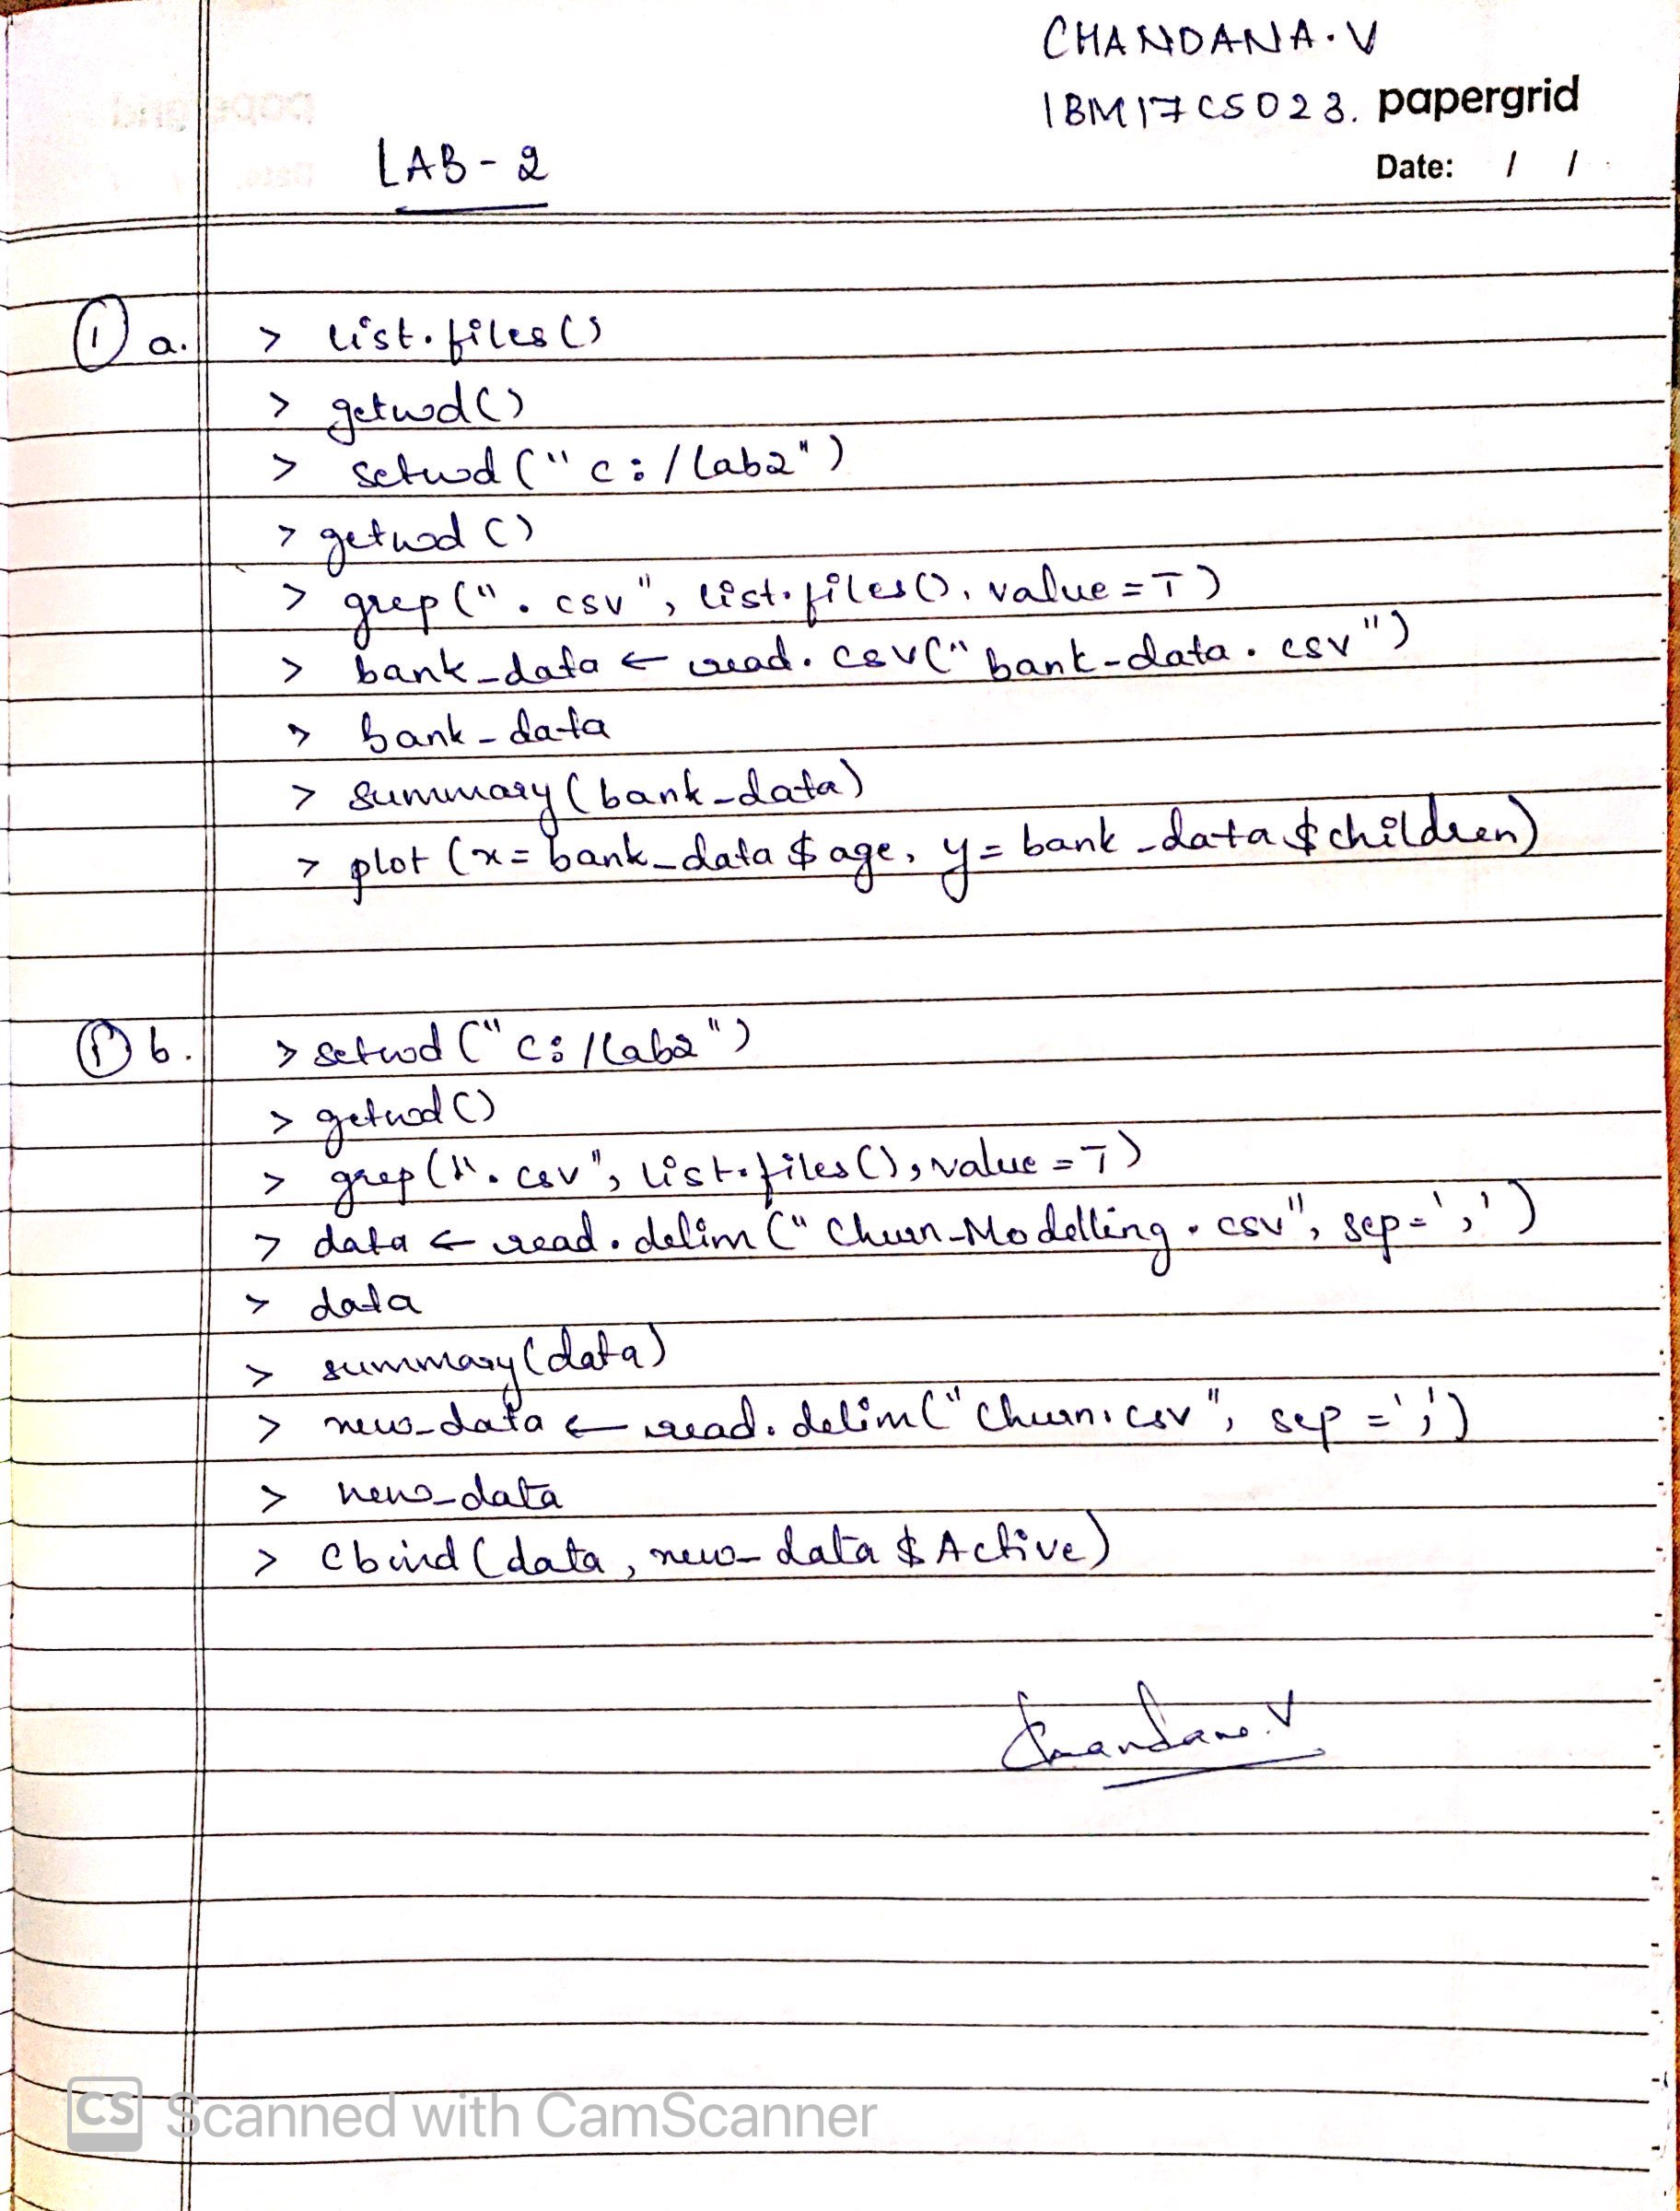 CHANDANA.V
1BM17CS023. papergrid
LAB-2
Date: / /
1 a. > list.files()
> getwd()
> setwd("c:/lab2")
> getwd()
> grep(".csv", list.files(), value=T)
> bank_data ← read.csv("bank-data.csv")
> bank_data
> summary(bank_data)
> plot(x=bank_data$age, y=bank_data$children)
1 b. > setwd("c:/lab2")
> getwd()
> grep(".csv", list.files(), value=T)
> data ← read.delim("Churn_Modelling.csv", sep=',')
> data
> summary(data)
> new_data ← read.delim("Churn.csv", sep=';')
> new_data
> cbind(data, new_data$Active)
Chandana.V
CS Scanned with CamScanner